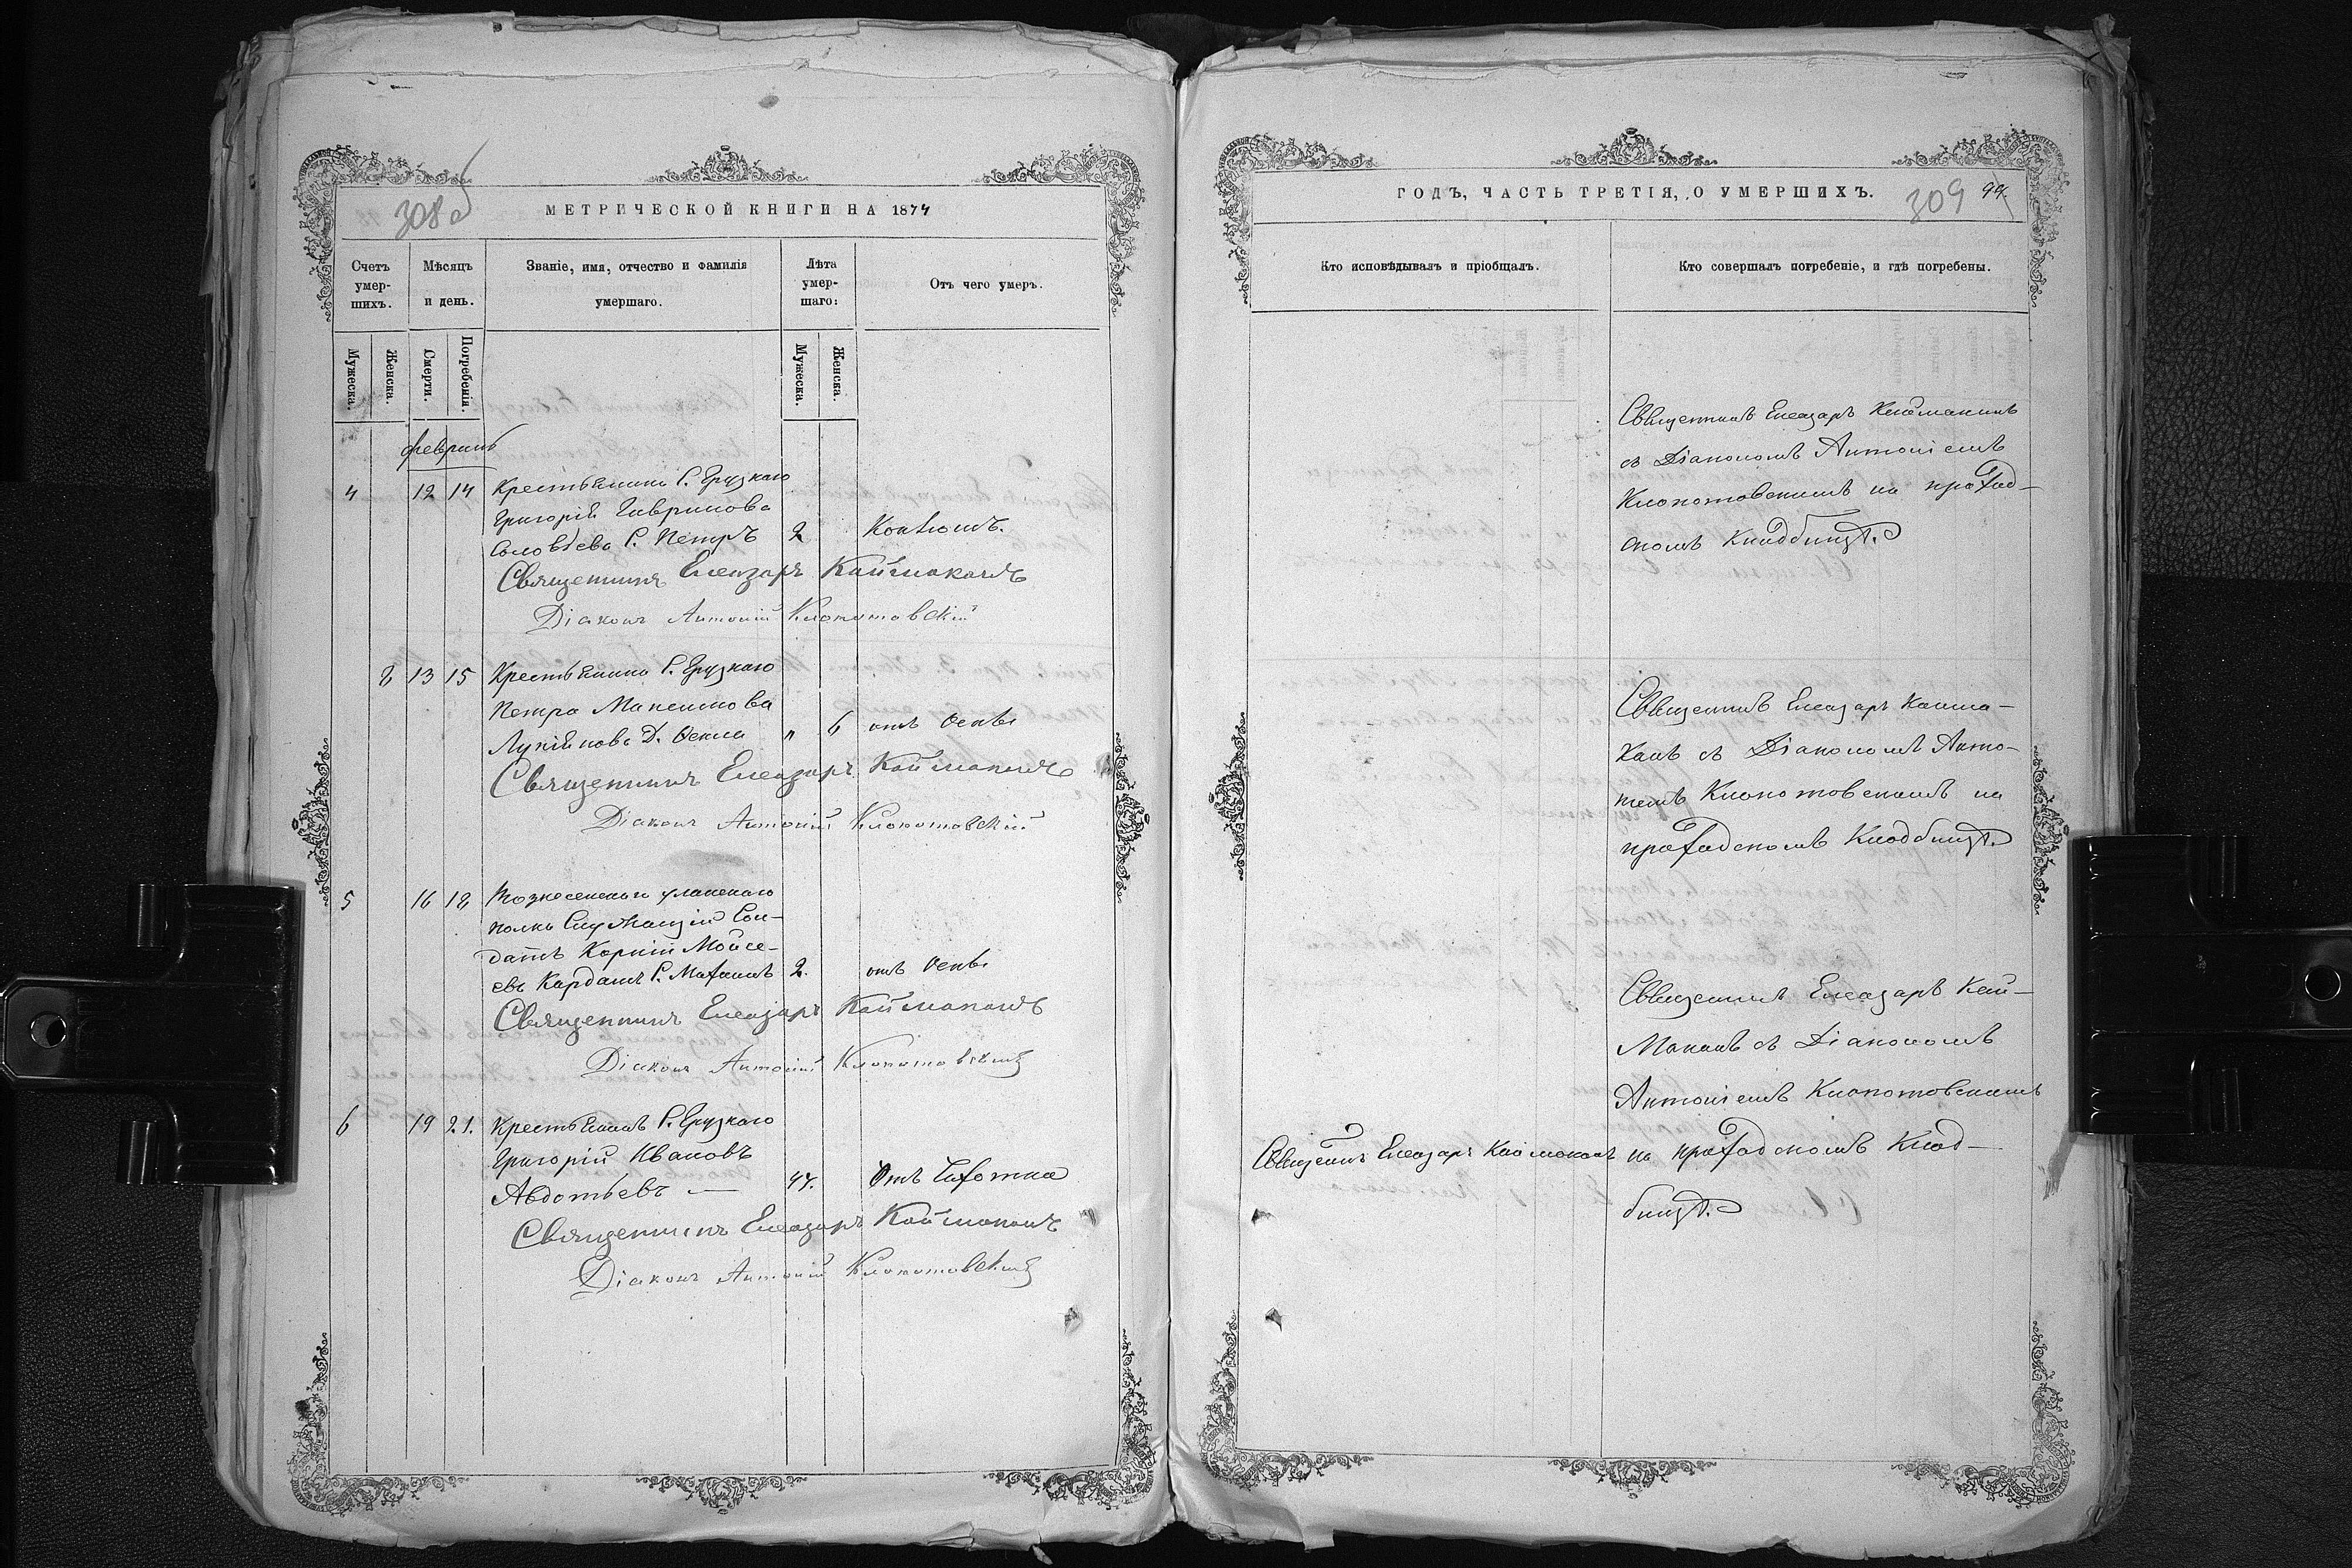 308 об
МЕТРИЧЕСКОЙ КНИГИ НА 1874
Счетъ умер-шихъ.
Мѣсяцъ и день.
Званіе, имя, отчество и фамилія умершаго.
Лѣта умер-шаго:
Отъ чего умеръ.
Мужеска.
Женска.
Смерти.
Погребенія.
Мужеска.
Женска.
февраль
4 12 14 Крестьянина С. Грузкаго
Григорій Гаврилова
Соловьева С. Петръ 2 Коклюшъ.
Священникъ Елеазаръ Каймаканъ
Діаконъ Антоній Клопотовскій
2 13 15 Крестьянина С. Грузкаго
Петра Максимова
Д. Ѳекла " 6 отъ Оспы
Священникъ Елеазаръ Каймаканъ
Діаконъ Антоній Клопотовскій
5 16 18 Вознесенскаго уланскаго
полка Служащій Сол-
датъ Корній Мойсе-
евъ Карданъ С. 2. отъ Оспы
Священникъ Елеазаръ Каймаканъ
Діаконъ Антоній Клопотовскій
6 19 21. Крестьянинъ С. Грузкаго
Григорій Ивановъ
Авдотьевъ — 44. Отъ Чахотки
Священникъ Елеазаръ Каймаканъ
Діаконъ Антоній Клопотовскій
ГОДЪ, ЧАСТЬ ТРЕТІЯ, О УМЕРШИХЪ.
309 99
Кто исповѣдывалъ и пріобщалъ.
Кто совершалъ погребеніе, и гдѣ погребены.
Священникъ Елеазаръ Каймаканъ
съ Діакономъ Антоніемъ
Клопотовскимъ на приход-
скомъ кладбищѣ.
Священникъ Елеазаръ Кайма-
канъ съ Діакономъ Анто-
ніемъ Клопотовскимъ на
приходскомъ Кладбищѣ.
Священникъ Елеазаръ Кай-
маканъ съ Діакономъ
Антоніемъ Клопотовскимъ
Священникъ Елеазаръ Каймаканъ на приходскомъ Клад-
бищѣ.